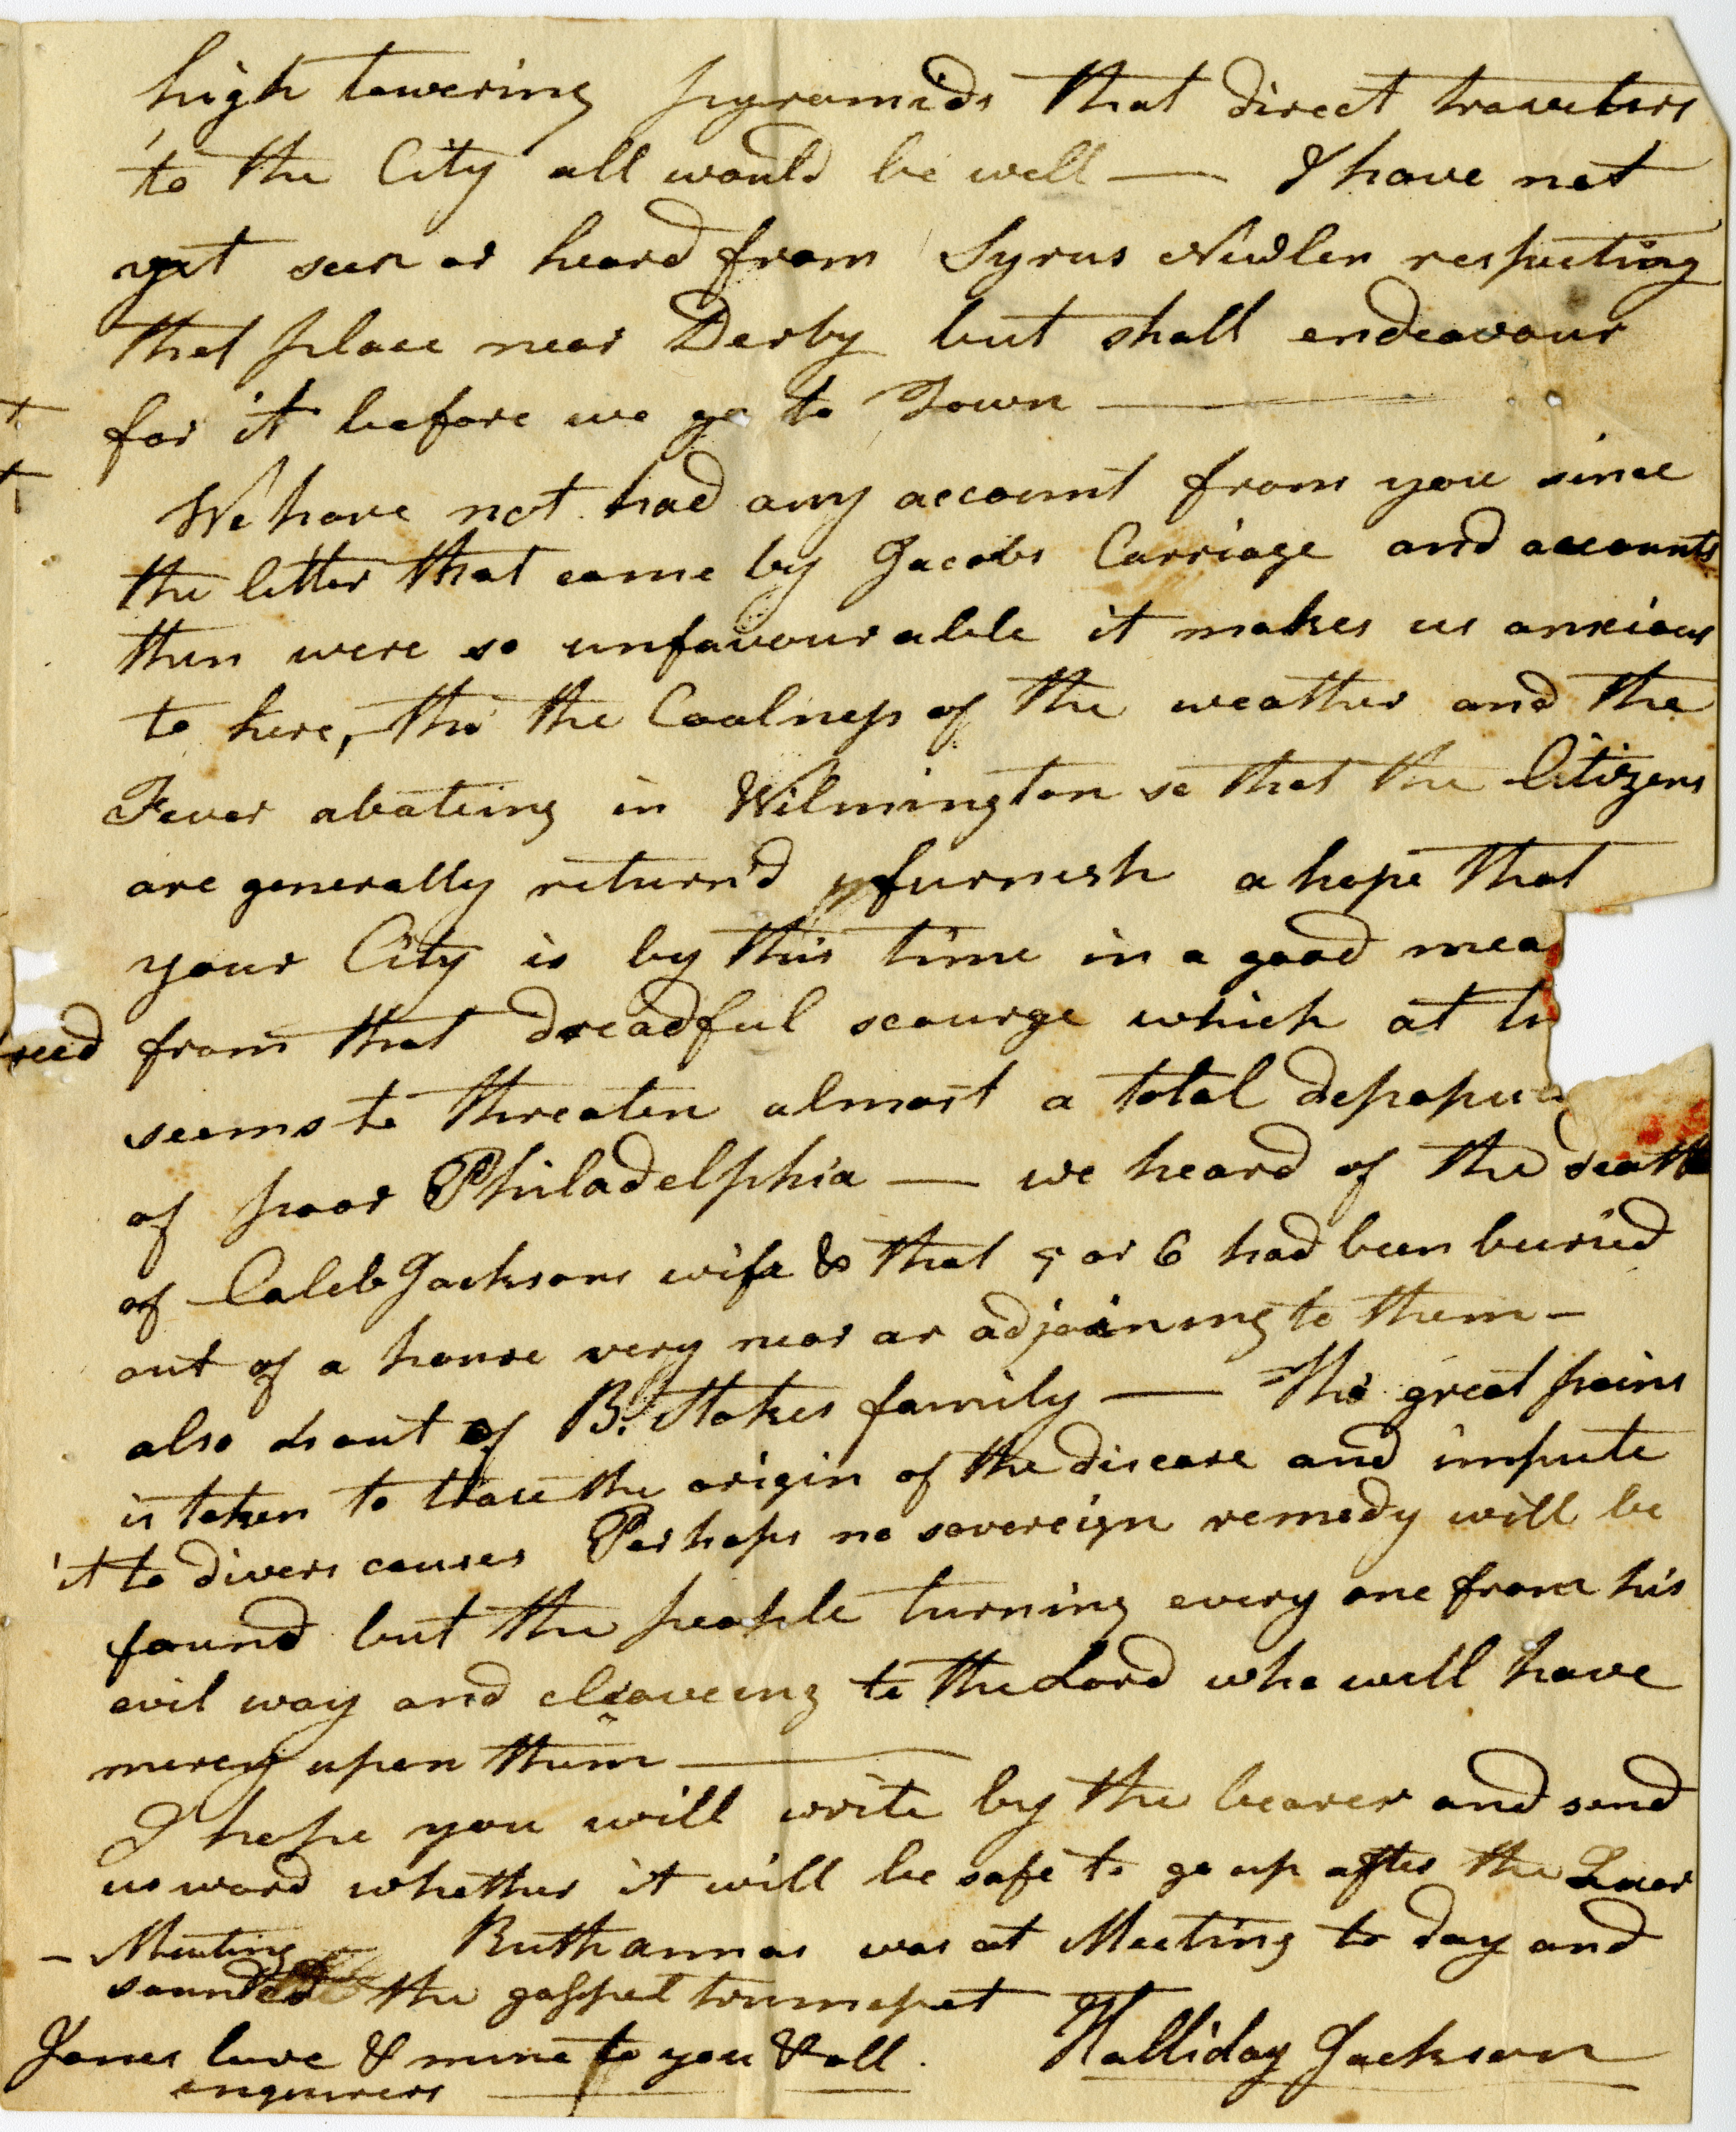 high towering pyramids that direct travelers
to the City all would be well — I have not
yet seen or heard from Syrus Newlen respecting
that place near Derby but shall endeavour
for it before we go to Town —
We have not had any account from you since
the letter that came by Jacobs Carriage and accounts
then were so unfavourable it makes us anxious
to here, tho the Coolness of the weather and the
Fever abateing in Wilmington so that the Citizens
are generally return'd furnish a hope that
your City is by this time in a good mea
reed from that dreadful scourge which at
seems to threaten almost a total depopu
of poor Philadelphia — we heard of the death
of Caleb Jacksons wife & that 5 or 6 had been buried
out of a house very near or adjoining to them —
also out of B. Stokes family — Tho great pains
is taken to trace the origin of the disease and impute
it to divers causes Perhaps no sovereign remedy will be
found but the people turning every one from his
evil way and cleaveing to the Lord who will have
mercy upon them —
I hope you will write by the bearer and send
us word whether it will be safe to go up after the
— Meeting — Ruthannas was at Meeting to day and
sounded the gospel trumpet
Janes love & mine to you & all Halliday Jackson
enquirers —